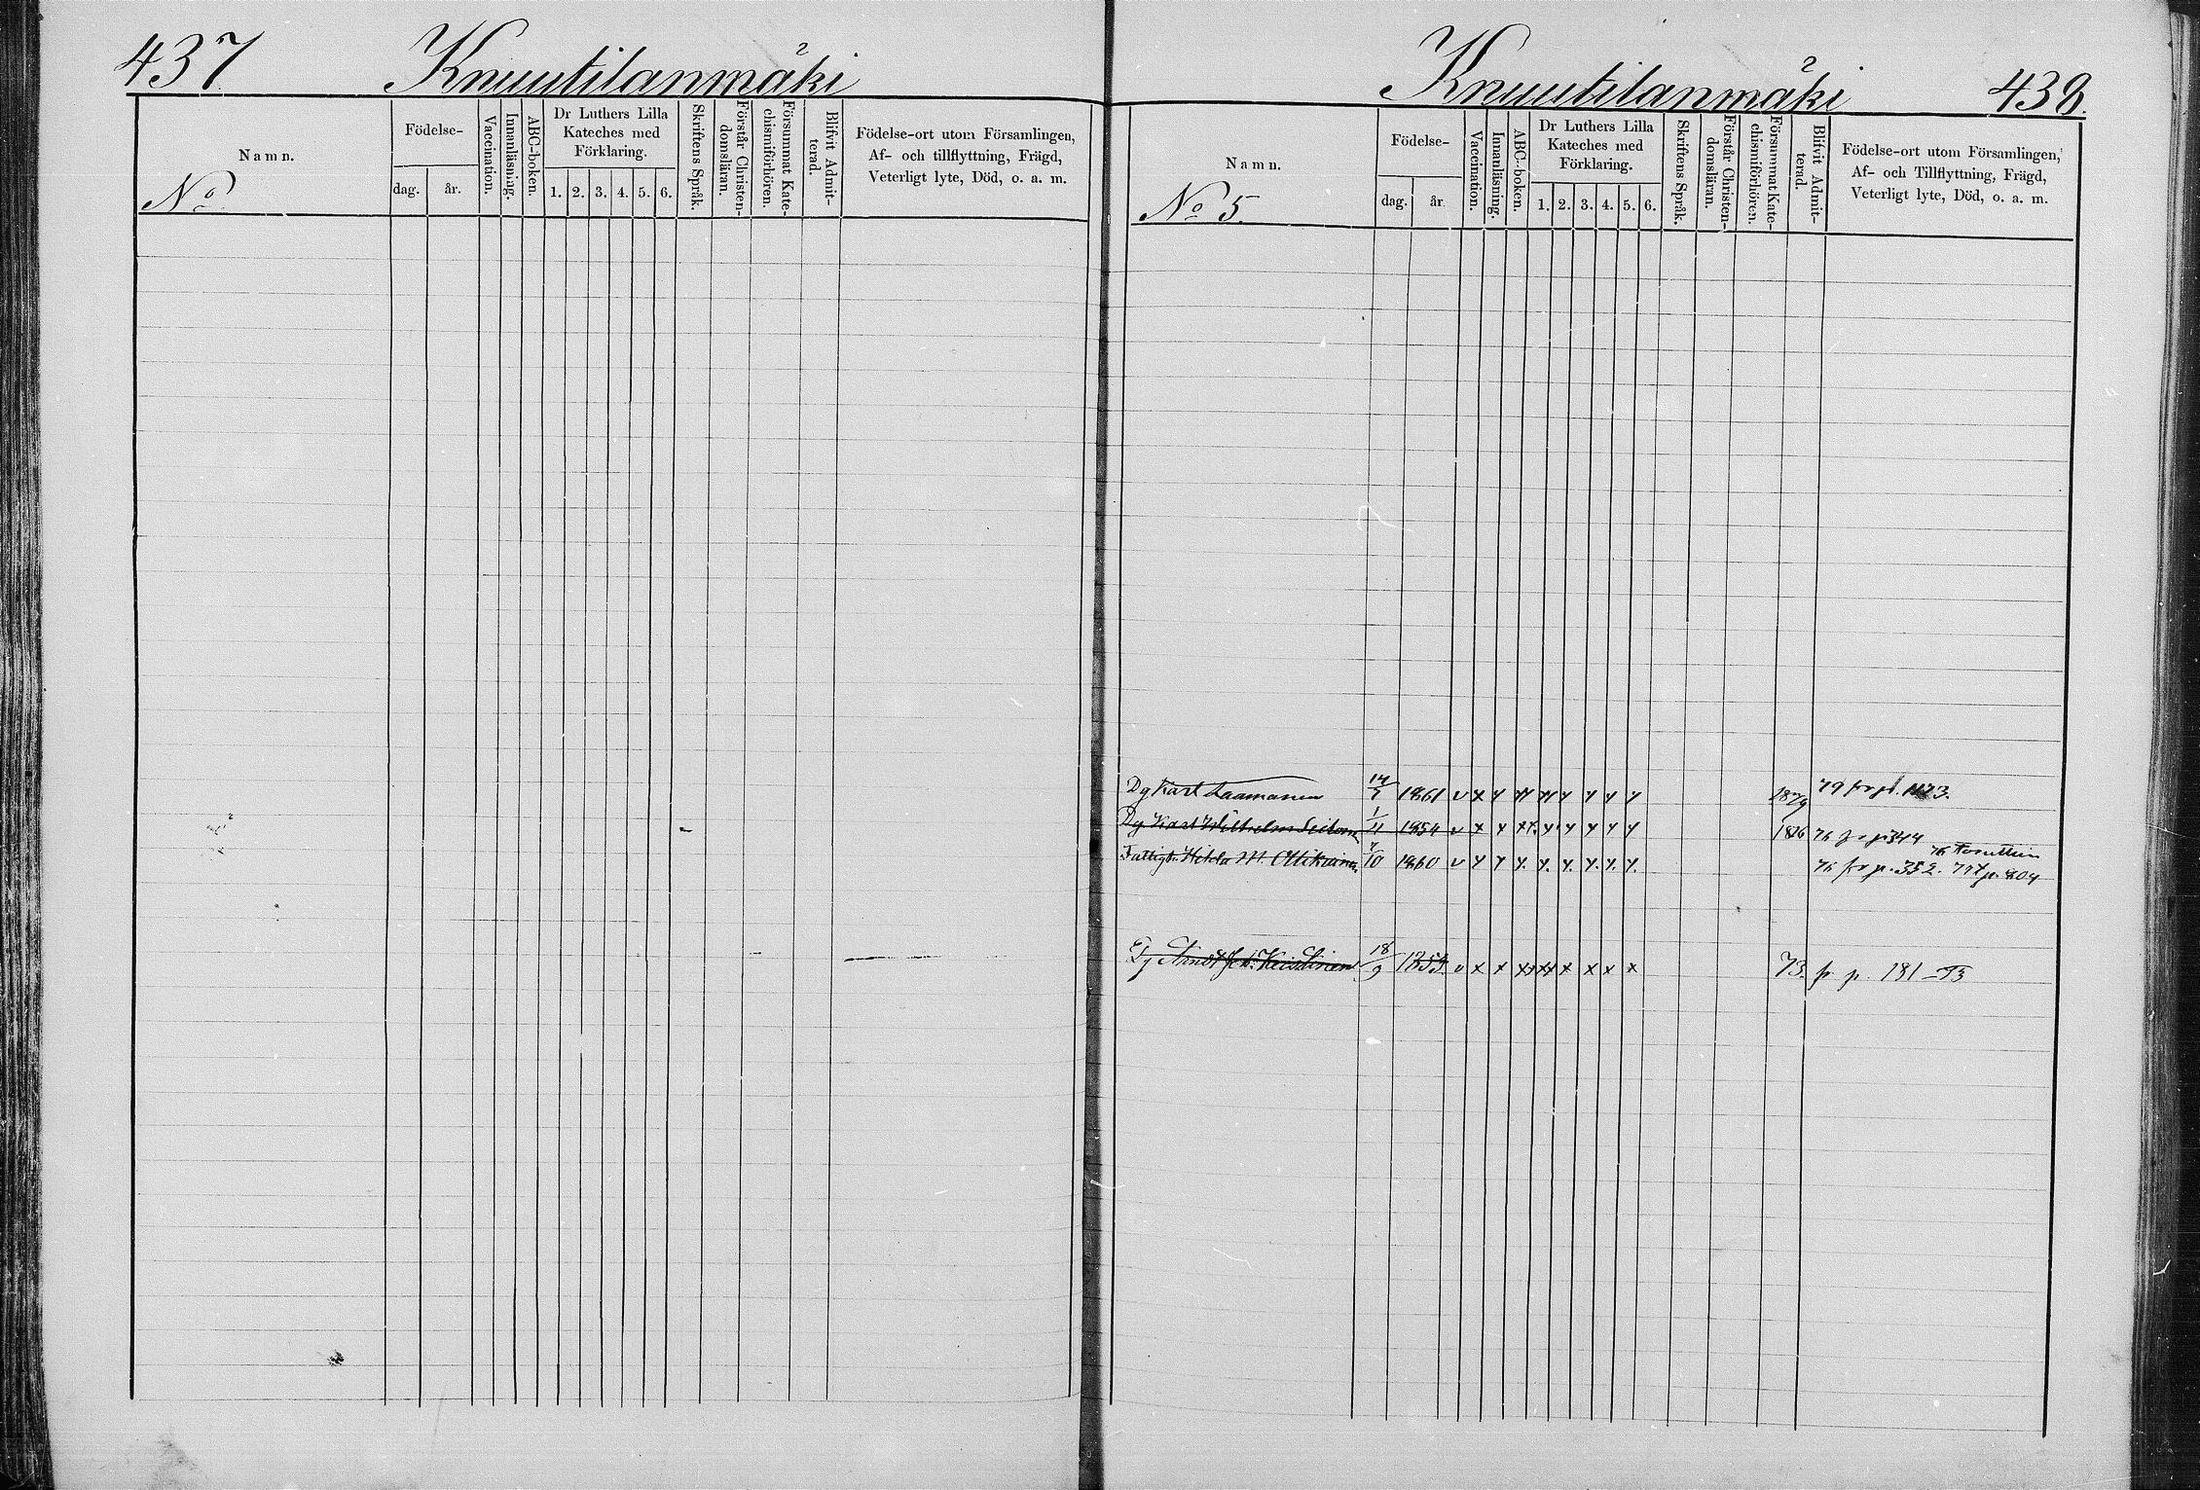 437 Knuutilanmäki 2
Namn.
No
Födelse-
dag. år.
Vaccination.
Innanläsning.
ABC-boken.
Dr Luthers Lilla
Kateches med
Förklaring.
1. 2. 3. 4. 5. 6.
Skriftens Språk.
Förstår Christen-
domsläran.
Försummat Kate-
chismiförhören.
Blifvit Admit-
terad.
Födelse-ort utom Församlingen,
Af- och tillflyttning, Frägd,
Veterligt lyte, Död, o. a. m.
Knuutilanmäki 2 438.
Namn.
No 5.
Födelse-
dag. år.
Vaccination.
Innanläsning.
ABC-boken.
Dr Luthers Lilla
Kateches med
Förklaring.
1. 2. 3. 4. 5. 6.
Skriftens Språk.
Förstår Christen-
domsläran.
Försummat Kate-
chismiförhören.
Blifvit Admit-
terad.
Födelse-ort utom Församlingen,
Af- och Tillflyttning, Frägd,
Veterligt lyte, Död, o. a. m.
Dg Karl Laamanen 14/7 1861 v x y y y y y y 1879 79 fr p.
Dg Karl Wilhelm 1/11 1854 v x y y y y y y 1876 76 fr p 344
Hilda M. Ollikainen /10 1860 v y y y. y. y. y. y. y. 76 fr p. 352. 77 t p. 804
Dg 18/9 v x x x x x x x 73. fr p. 181 - 73